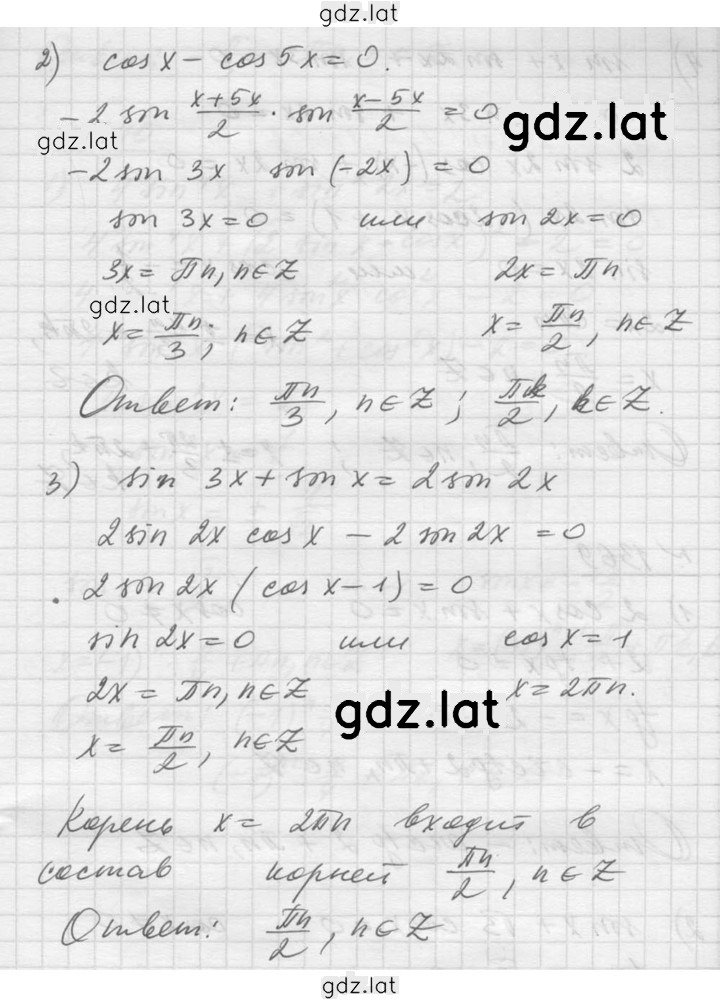 gdz.lat
2) cos x − cos 5x = 0.
−2 sin (x+5x)/2 · sin (x−5x)/2 = 0
gdz.lat
gdz.lat
−2 sin 3x sin (−2x) = 0
sin 3x = 0 или sin 2x = 0
3x = πn, n∈Z 2x = πn
gdz.lat
x = πn/3; n∈Z x = πn/2, n∈Z
Ответ: πn/3, n∈Z; πk/2, k∈Z.
3) sin 3x + sin x = 2 sin 2x
2 sin 2x cos x − 2 sin 2x = 0
2 sin 2x (cos x − 1) = 0
sin 2x = 0 или cos x = 1
2x = πn, n∈Z x = 2πn.
gdz.lat
x = πn/2, n∈Z
Корень x = 2πn входит в
состав корней πn/2, n∈Z
Ответ: πn/2, n∈Z
gdz.lat